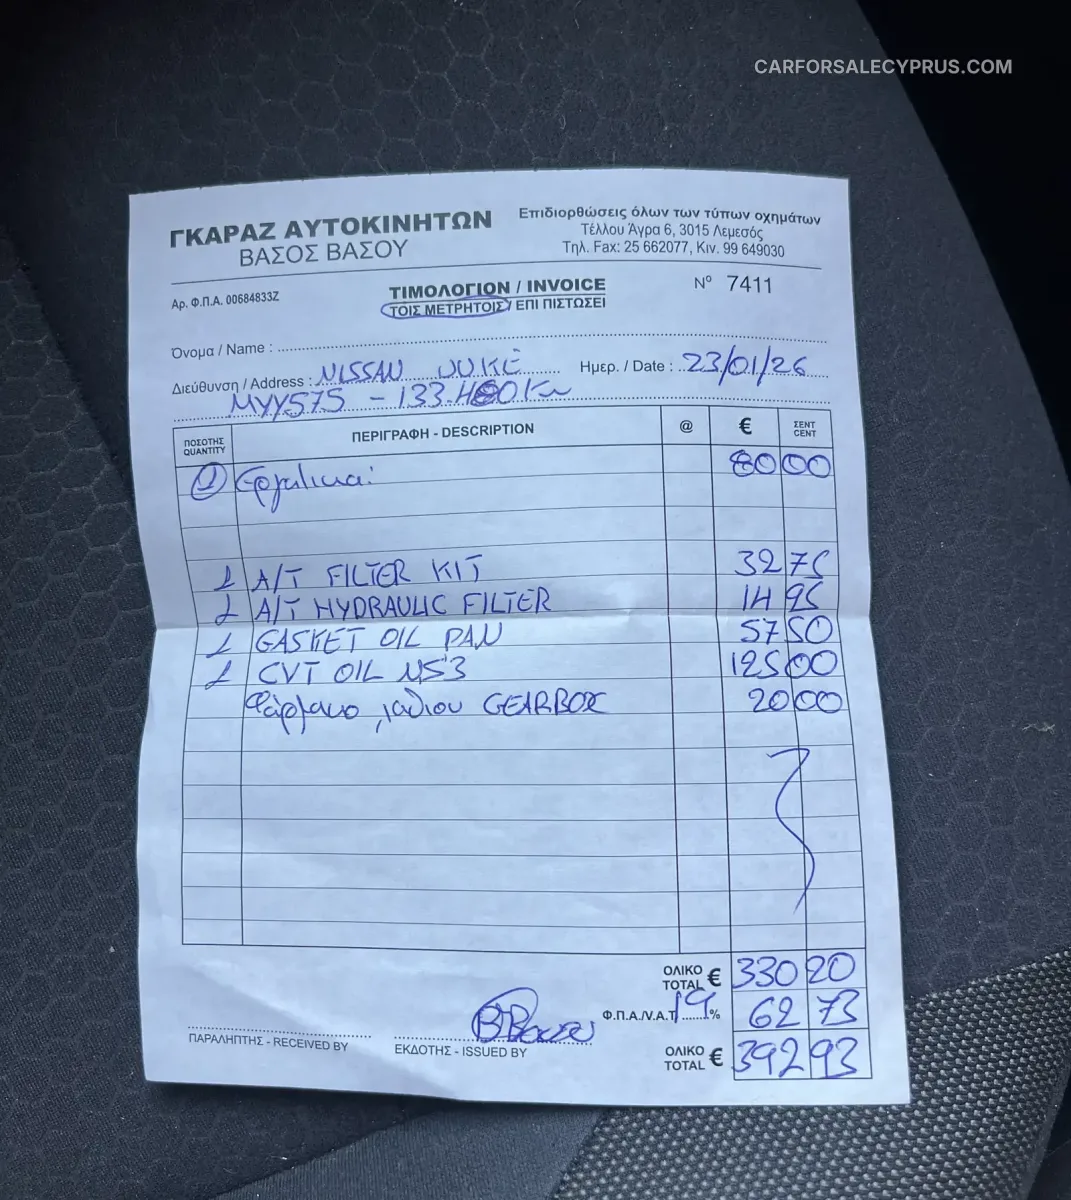 CARFORSALECYPRUS.COM
ΓΚΑΡΑΖ ΑΥΤΟΚΙΝΗΤΩΝ
ΒΑΣΟΣ ΒΑΣΟΥ
Επιδιορθώσεις όλων των τύπων οχημάτων
Τέλλου Άγρα 6, 3015 Λεμεσός
Τηλ. Fax: 25 662077, Κιν. 99 649030
Αρ. Φ.Π.Α. 00684833Z
ΤΙΜΟΛΟΓΙΟΝ / INVOICE
ΤΟΙΣ ΜΕΤΡΗΤΟΙΣ / ΕΠΙ ΠΙΣΤΩΣΕΙ
Νº 7411
Όνομα / Name :
Διεύθυνση / Address : NISSAN JUKE
Ημερ. / Date : 23/01/26
MYY575 - 133.480Km
ΠΟΣΟΤΗΣ QUANTITY ΠΕΡΙΓΡΑΦΗ - DESCRIPTION @ € ΣΕΝΤ CENT
1 Εργατικα: 80 00
1 A/T FILTER KIT 32 75
1 A/T HYDRAULIC FILTER 14 95
1 GASKET OIL PAN 57 50
1 CVT OIL NS3 125 00
Φάρμακο λαδιου GEARBOX 20 00
ΟΛΙΚΟ TOTAL € 330 20
Φ.Π.Α./V.A.T. 19 % 62 73
ΟΛΙΚΟ TOTAL € 392 93
ΠΑΡΑΛΗΠΤΗΣ - RECEIVED BY
ΕΚΔΟΤΗΣ - ISSUED BY